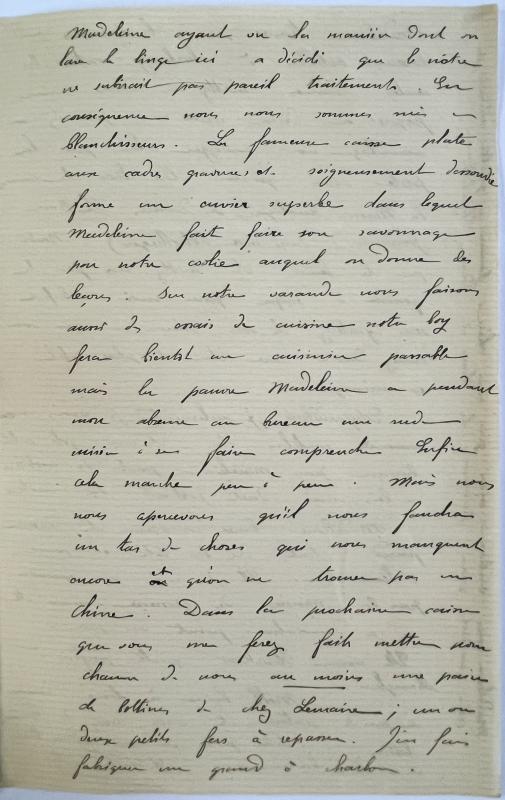 Madeleine ayant vu la manière dont on
lave le linge ici a décidé que le nôtre
ne subirait pas pareil traitement. En
conséquence nous nous sommes mis
blanchisseurs. La fameuse caisse plate
aux cadres gravures et soigneusement dessoudée
forme un cuvier superbe dans lequel
Madeleine fait faire son savonnage
par notre coolie auquel on donne des
leçons. Sur notre varande nous faisons
aussi des essais de cuisine notre boy
fera bientôt un cuisinier passable
mais la pauvre Madeleine a pendant
mon absence au bureau une rude
misère à se faire comprendre. Enfin
cela marche peu à peu. Mais nous
nous apercevons qu'il nous faudra
un tas de choses qui nous manquent
encore et qu'on ne trouve pas en
Chine. Dans la prochaine caisse
que vous me ferez faites mettre pour
chacun de nous au moins une paire
de bottines de chez Lemaire; un ou
deux petits fers à repasser. J'en fais
fabriquer un grand à charbon.